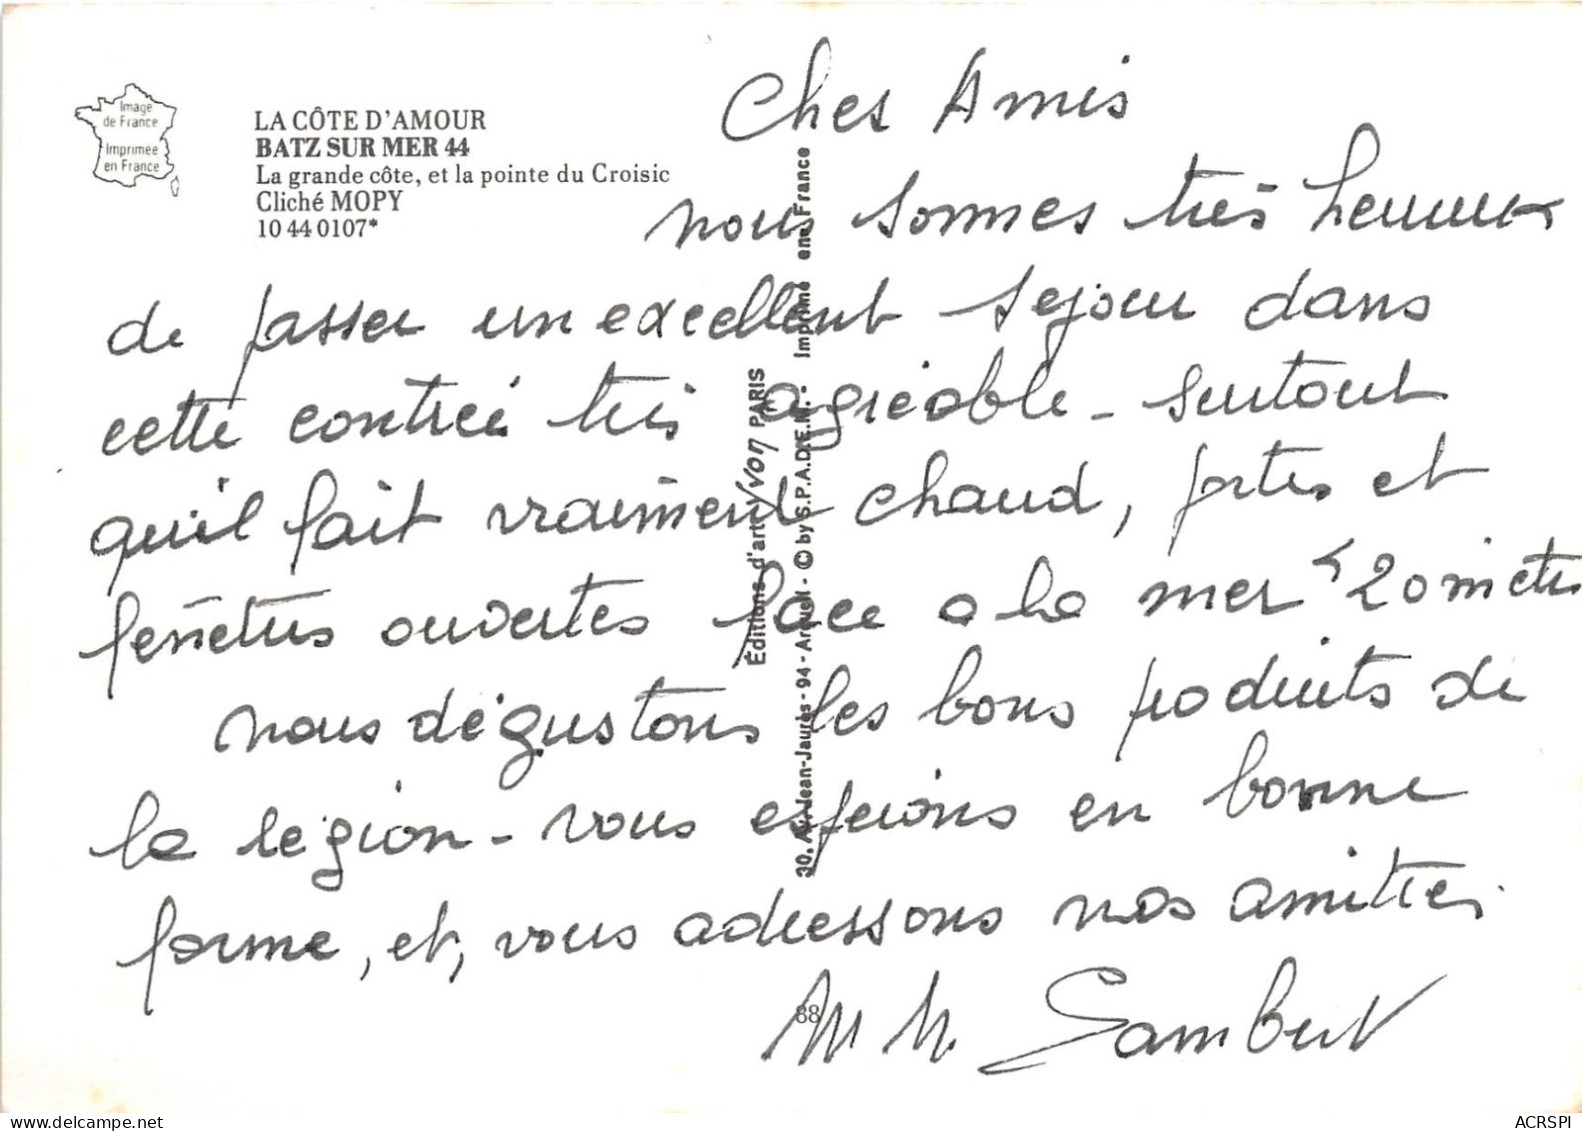 Image
de France
Imprimée
en France
LA CÔTE D'AMOUR
BATZ SUR MER 44
La grande côte, et la pointe du Croisic
Cliché MOPY
10 44 0107*
Chers Amis
nous sommes très heureux
de passer un excellent séjour dans
cette contrée très agréable - surtout
qu'il fait vraiment chaud, portes et
fenêtres ouvertes face a la mer < 20 mètres
nous dégustons les bons produits de
la région - vous espérons en bonne
forme, et, vous adressons nos amitiés.
M
Éditions d'art Yvon PARIS
30. Av. Jean-Jaurès - 94 - Arcueil - © by S.P.A.D.E.M. - Imprimé en France
88
ACRSPI